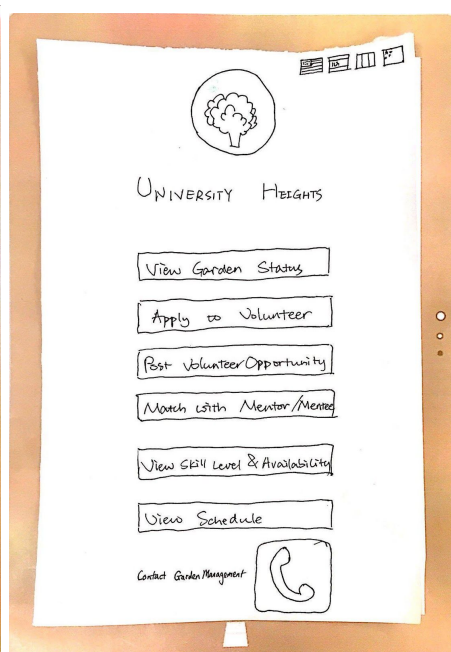 UNIVERSITY HEIGHTS
View Garden Status
Apply to Volunteer
Post Volunteer Opportunity
Match with Mentor/Mentee
View Skill Level & Availability
View Schedule
Contact Garden Management